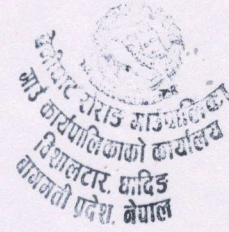 बेनीघाट रोराङ गाउँपालिका
गाउँ कार्यपालिकाको कार्यालय
विशालटार, धादिङ
बागमती प्रदेश, नेपाल